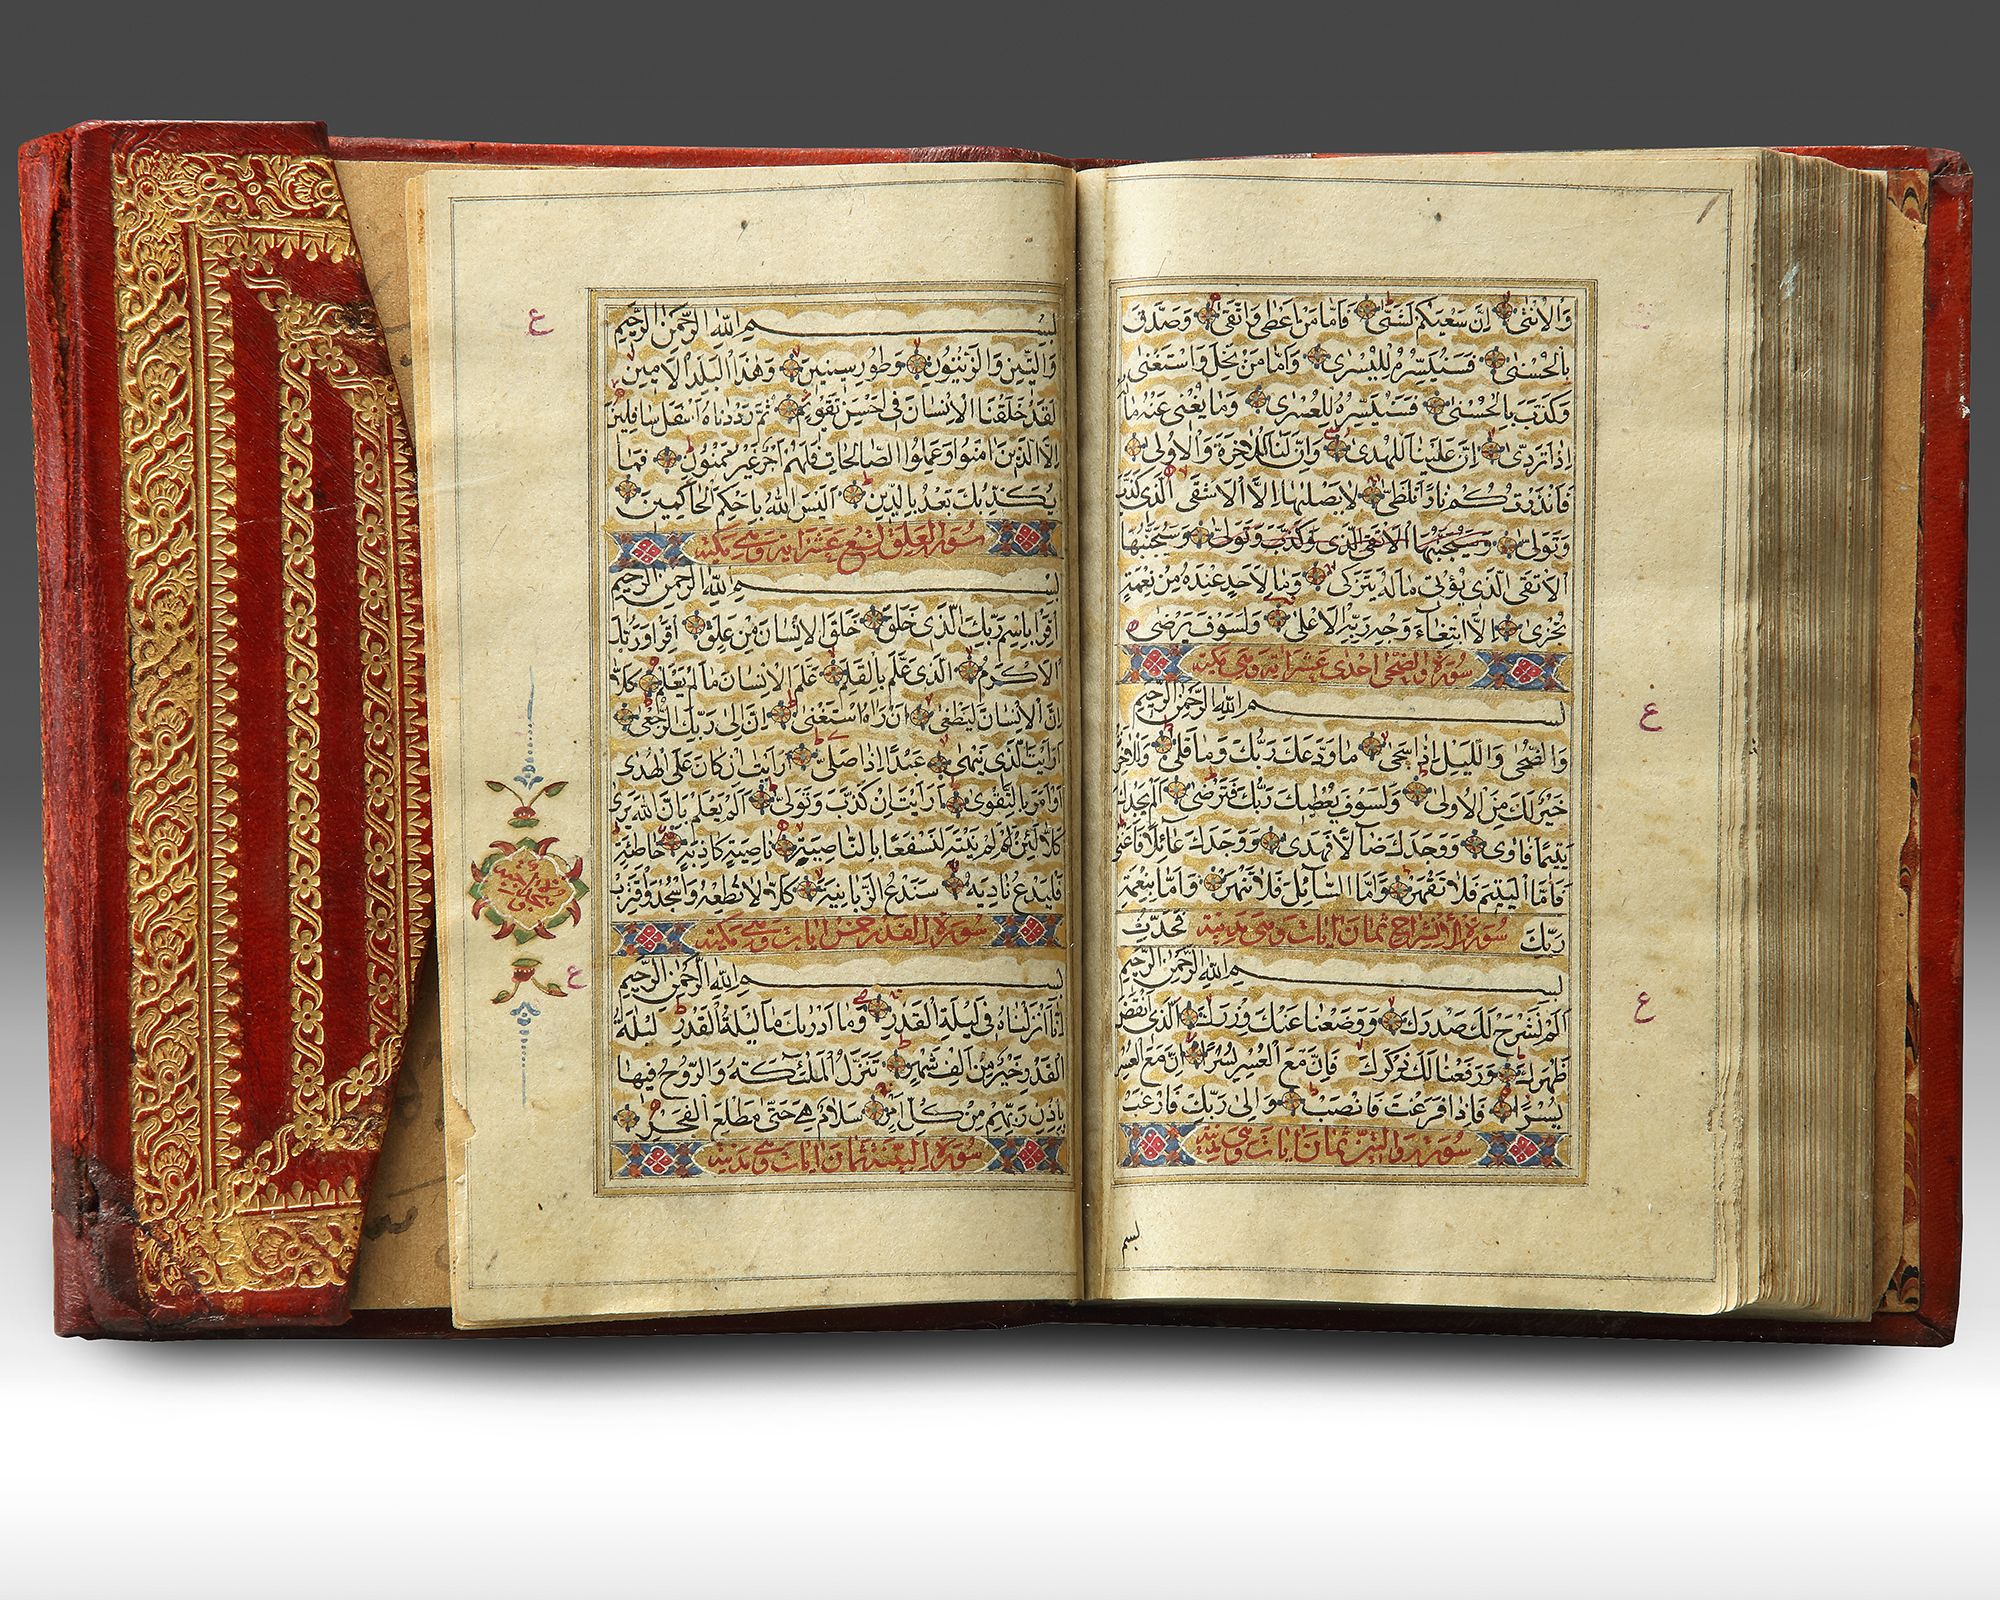 وَالْاُنْثٰى اِنَّ سَعْيَكُمْ لَشَتّٰى فَاَمَّا مَنْ اَعْطٰى وَاتَّقٰى وَصَدَّقَ
بِالْحُسْنٰى فَسَنُيَسِّرُهُ لِلْيُسْرٰى وَاَمَّا مَنْ بَخِلَ وَاسْتَغْنٰى
وَكَذَّبَ بِالْحُسْنٰى فَسَنُيَسِّرُهُ لِلْعُسْرٰى وَمَا يُغْنٖى عَنْهُ مَالُهُ
اِذَا تَرَدّٰى اِنَّ عَلَيْنَا لَلْهُدٰى وَاِنَّ لَنَا لَلْاٰخِرَةَ وَالْاُولٰى
فَاَنْذَرْتُكُمْ نَارًا تَلَظّٰى لَا يَصْلٰيهَا اِلَّا الْاَشْقَى الَّذٖى كَذَّبَ
وَتَوَلّٰى وَسَيُجَنَّبُهَا الْاَتْقَى الَّذٖى كَذَّبَ وَتَوَلّٰى وَسَيُجَنَّبُهَا
الْاَتْقَى الَّذٖى يُؤْتٖى مَالَهُ يَتَزَكّٰى وَمَا لِاَحَدٍ عِنْدَهُ مِنْ نِعْمَةٍ
تُجْزٰى اِلَّا ابْتِغَاءَ وَجْهِ رَبِّهِ الْاَعْلٰى وَلَسَوْفَ يَرْضٰى
سورة والضحى احدى عشر اية وهى مكية
بِسْمِ اللّٰهِ الرَّحْمٰنِ الرَّحِيمِ
وَالضُّحٰى وَالَّيْلِ اِذَا سَجٰى مَا وَدَّعَكَ رَبُّكَ وَمَا قَلٰى وَلَلْاٰخِرَةُ
خَيْرٌ لَكَ مِنَ الْاُولٰى وَلَسَوْفَ يُعْطٖيكَ رَبُّكَ فَتَرْضٰى اَلَمْ يَجِدْكَ
يَتٖيمًا فَاٰوٰى وَوَجَدَكَ ضَالًّا فَهَدٰى وَوَجَدَكَ عَائِلًا فَاَغْنٰى
فَاَمَّا الْيَتٖيمَ فَلَا تَقْهَرْ وَاَمَّا السَّائِلَ فَلَا تَنْهَرْ وَاَمَّا بِنِعْمَةِ
رَبِّكَ فَحَدِّثْ سورة الانشراح ثمان ايات وهى مدنية
بِسْمِ اللّٰهِ الرَّحْمٰنِ الرَّحِيمِ
اَلَمْ نَشْرَحْ لَكَ صَدْرَكَ وَوَضَعْنَا عَنْكَ وِزْرَكَ الَّذٖى اَنْقَضَ
ظَهْرَكَ وَرَفَعْنَا لَكَ ذِكْرَكَ فَاِنَّ مَعَ الْعُسْرِ يُسْرًا اِنَّ مَعَ الْعُسْرِ
يُسْرًا فَاِذَا فَرَغْتَ فَانْصَبْ وَاِلٰى رَبِّكَ فَارْغَبْ
سورة والتين ثمان ايات وهى مكية
بسم
ع
ع
بِسْمِ اللّٰهِ الرَّحْمٰنِ الرَّحِيمِ
وَالتّٖينِ وَالزَّيْتُونِ وَطُورِ سٖينٖينَ وَهٰذَا الْبَلَدِ الْاَمٖينِ
لَقَدْ خَلَقْنَا الْاِنْسَانَ فٖى اَحْسَنِ تَقْوٖيمٍ ثُمَّ رَدَدْنَاهُ اَسْفَلَ سَافِلٖينَ
اِلَّا الَّذٖينَ اٰمَنُوا وَعَمِلُوا الصَّالِحَاتِ فَلَهُمْ اَجْرٌ غَيْرُ مَمْنُونٍ فَمَا
يُكَذِّبُكَ بَعْدُ بِالدّٖينِ اَلَيْسَ اللّٰهُ بِاَحْكَمِ الْحَاكِمٖينَ
سورة العلق تسع عشر اية وهى مكية
بِسْمِ اللّٰهِ الرَّحْمٰنِ الرَّحِيمِ
اِقْرَاْ بِاسْمِ رَبِّكَ الَّذٖى خَلَقَ خَلَقَ الْاِنْسَانَ مِنْ عَلَقٍ اِقْرَاْ وَرَبُّكَ
الْاَكْرَمُ الَّذٖى عَلَّمَ بِالْقَلَمِ عَلَّمَ الْاِنْسَانَ مَا لَمْ يَعْلَمْ كَلَّا
اِنَّ الْاِنْسَانَ لَيَطْغٰى اَنْ رَاٰهُ اسْتَغْنٰى اِنَّ اِلٰى رَبِّكَ الرُّجْعٰى
اَرَاَيْتَ الَّذٖى يَنْهٰى عَبْدًا اِذَا صَلّٰى اَرَاَيْتَ اِنْ كَانَ عَلَى الْهُدٰى
اَوْ اَمَرَ بِالتَّقْوٰى اَرَاَيْتَ اِنْ كَذَّبَ وَتَوَلّٰى اَلَمْ يَعْلَمْ بِاَنَّ اللّٰهَ يَرٰى
كَلَّا لَئِنْ لَمْ يَنْتَهِ لَنَسْفَعًا بِالنَّاصِيَةِ نَاصِيَةٍ كَاذِبَةٍ خَاطِئَةٍ
فَلْيَدْعُ نَادِيَهُ سَنَدْعُ الزَّبَانِيَةَ كَلَّا لَا تُطِعْهُ وَاسْجُدْ وَاقْتَرِبْ
سورة القدر خمس ايات وهى مكية
بِسْمِ اللّٰهِ الرَّحْمٰنِ الرَّحِيمِ
اِنَّا اَنْزَلْنَاهُ فٖى لَيْلَةِ الْقَدْرِ وَمَا اَدْرٰيكَ مَا لَيْلَةُ الْقَدْرِ لَيْلَةُ
الْقَدْرِ خَيْرٌ مِنْ اَلْفِ شَهْرٍ تَنَزَّلُ الْمَلٰئِكَةُ وَالرُّوحُ فٖيهَا
بِاِذْنِ رَبِّهِمْ مِنْ كُلِّ اَمْرٍ سَلَامٌ هِىَ حَتّٰى مَطْلَعِ الْفَجْرِ
سورة البينة ثمان ايات وهى مدنية
ع
ع